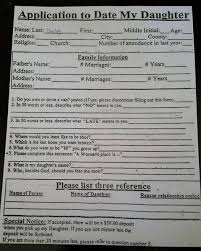 Application to Date My Daughter
Name: Last: First: Middle Initial: Age:
Address: City: County:
Religion: Church: Number of attendance in last year:
Family Information
Father's Name: # Marriages: # Years
Address:
Mother's Name: # Marriages: # Years
Address:
1. Do you own or drive a van? yes/no (if yes, please discontinue filling out this form).
2. In 30 words or less, describe what "NO" means to you.
3. In 30 words or less, describe what "LATE" means to you.
4. Where would you least like to be shot?
5. Which is the last bone you want broken?
6. What do you want to be "IF" you grow up?
7. Please complete this sentence "A Woman's place is..."
8. What is my daughter's name?
9. Who, besides God, should you fear the most?
Please list three reference
Name of Person Name of Daughter Reason relationship ended
Special Notice: If accepted, there will be a $50.00 deposit
when you pick up my Daughter. If you are more than 30 minutes
late, the deposit
If you are more than 30 minutes late, please see question number 2.